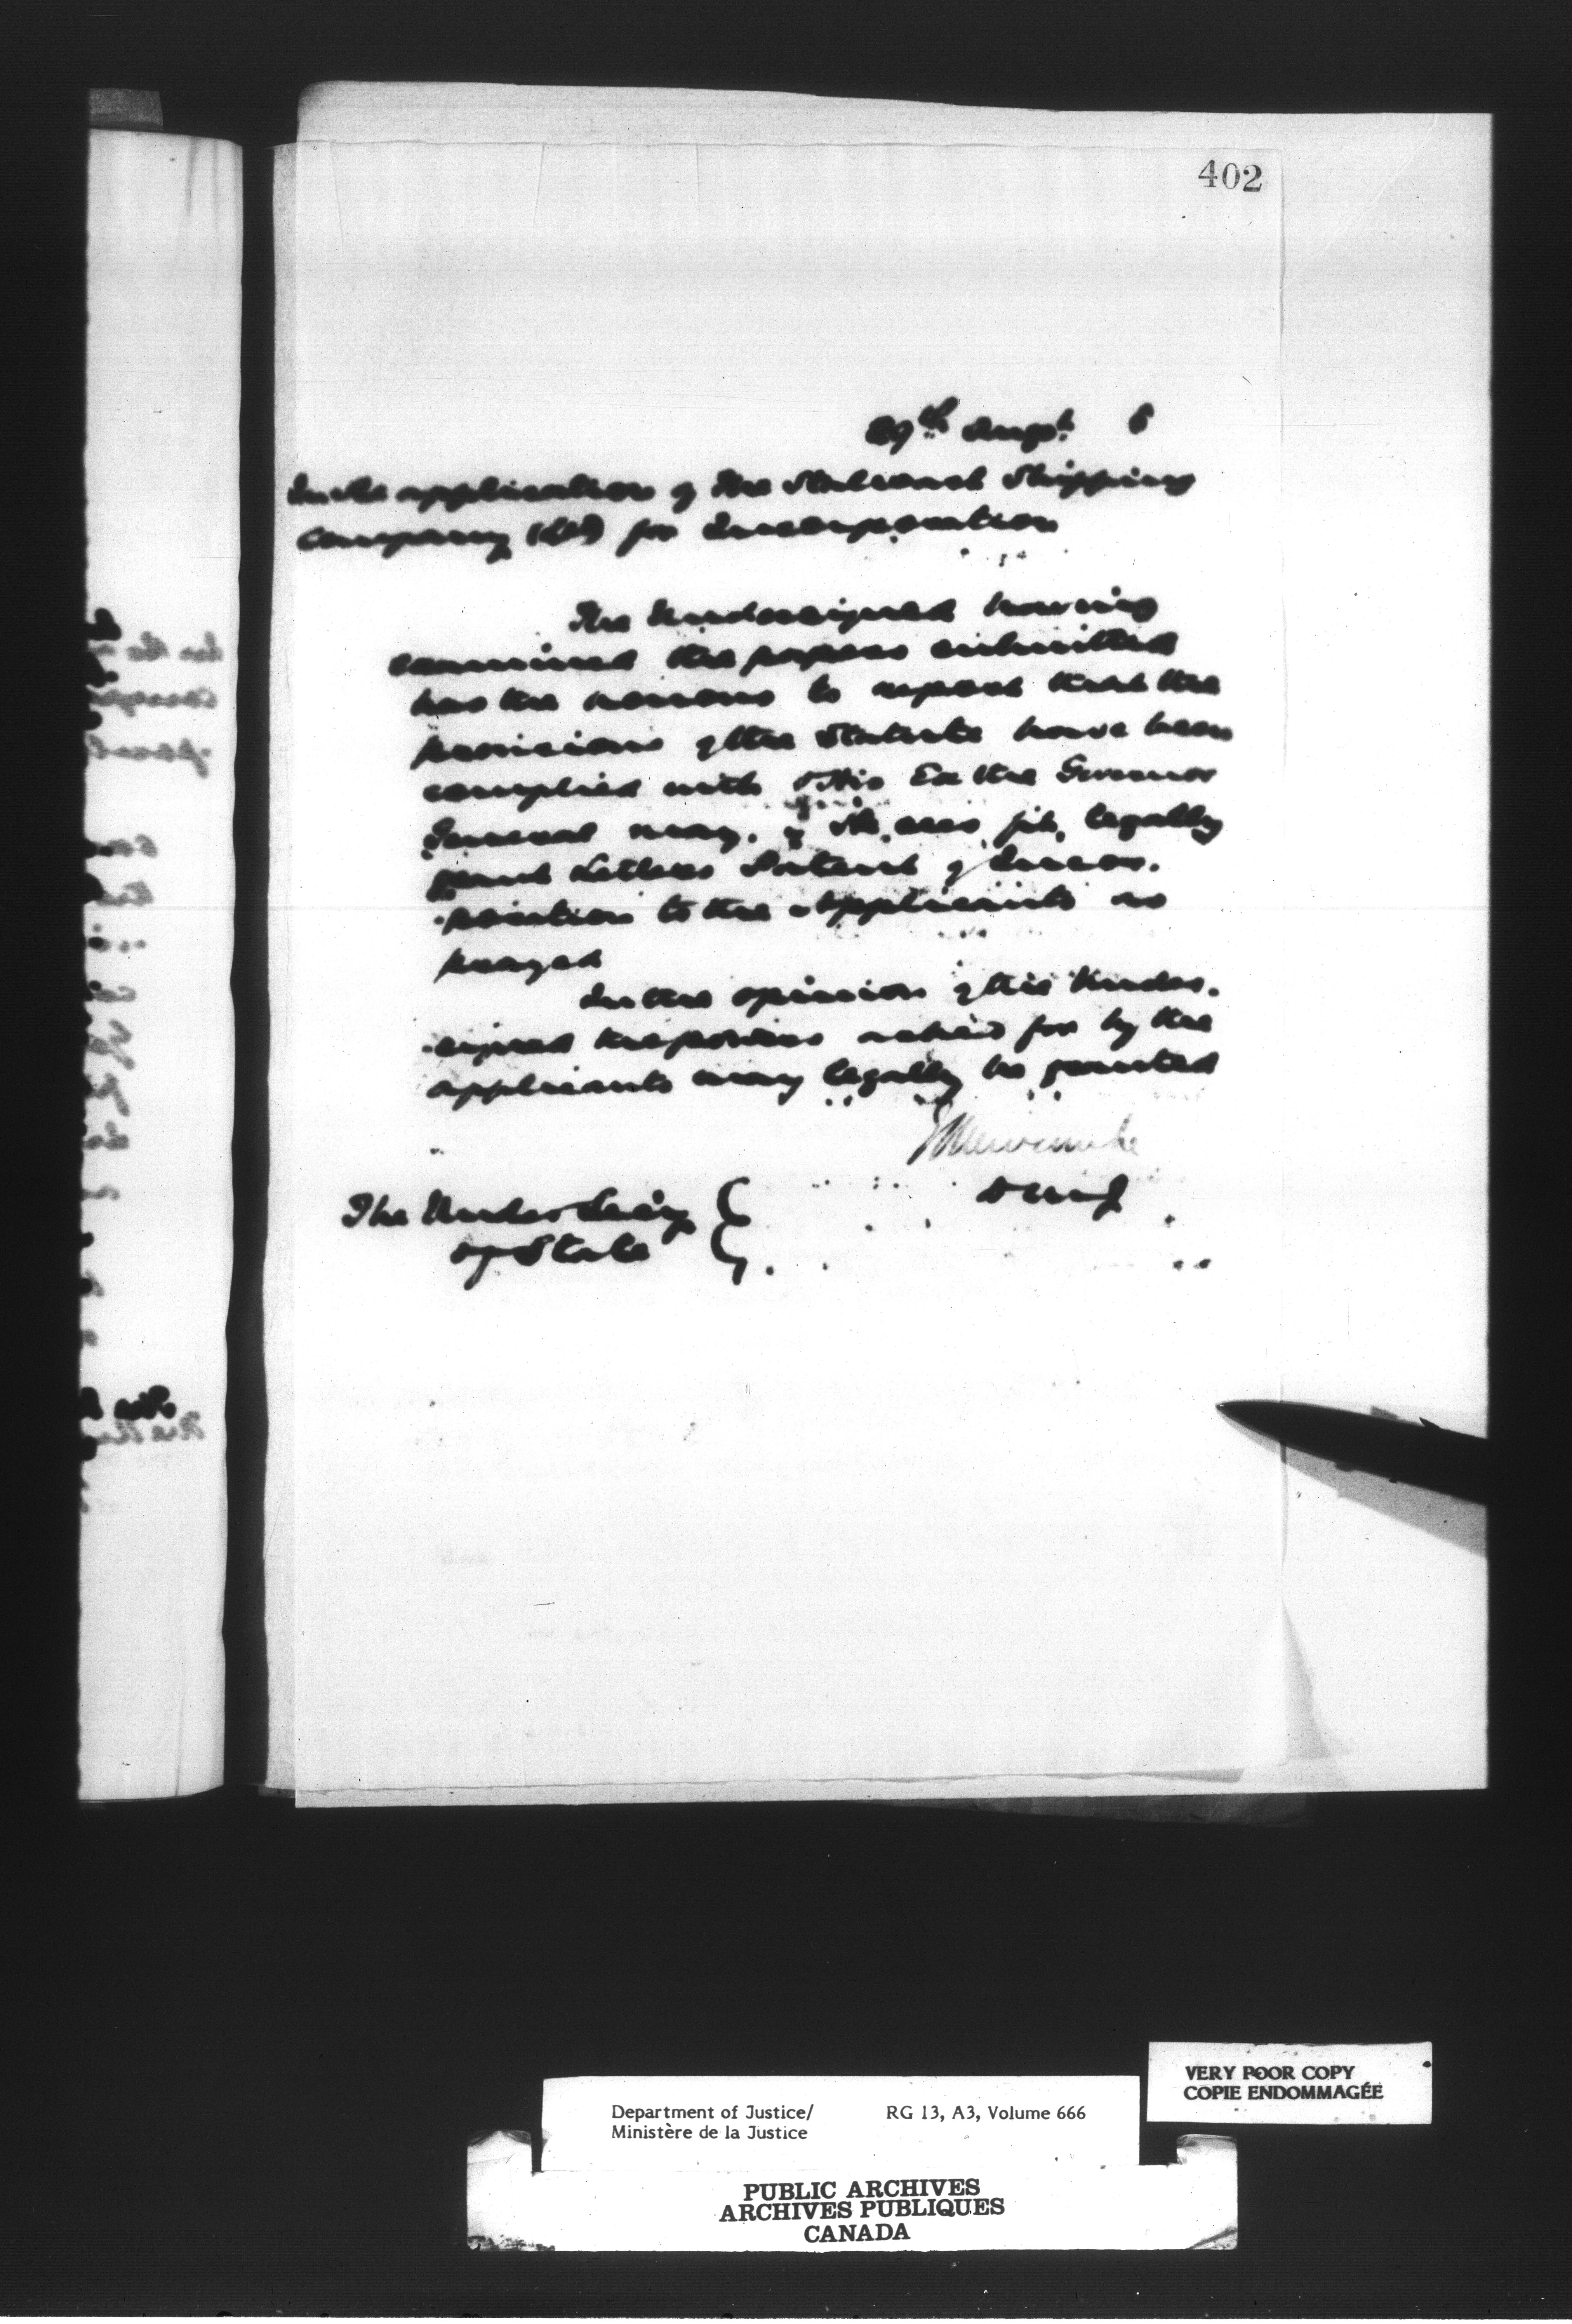 402
29th Augst. 8
In the application of The National Shipping
Company (Ltd) for Incorporation
The Undersigned having
examined the papers submitted
has the honour to report that the
provisions of the Statute have been
complied with & His Ex the Governor
General may. if He sees fit, legally
grant Letters Patent of Incor.
-poration to the Applicants as
prayed
In the opinion of this Unders.
-signed the powers asked for by the
applicants may legally be granted
E L Newcombe
D M J
The Under Secy
of State
VERY POOR COPY
COPIE ENDOMMAGÉE
Department of Justice/ RG 13, A3, Volume 666
Ministère de la Justice
PUBLIC ARCHIVES
ARCHIVES PUBLIQUES
CANADA